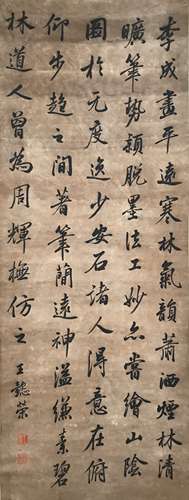 李成畫平遠寒林氣韻蕭洒煙林清
曠筆勢穎脫墨法工妙亦嘗繪山陰
圖於元度逸少安石諸人得意在俯
仰步趨之間著筆蕳遠神溢縑素碧
林道人曾為周輝撫仿之 王懿榮